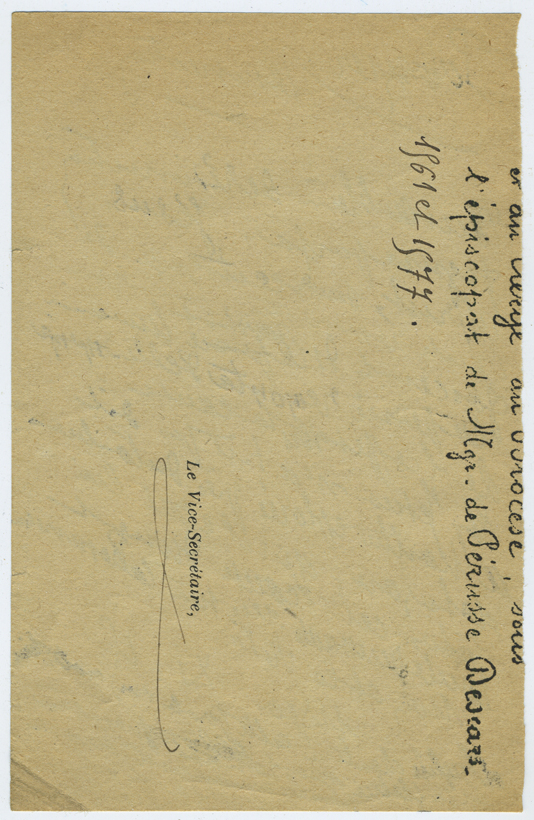 et au clergé du Diocèse, sous
l'épiscopat de Mgr. de Pérusse Descars.
1561 et 1577.
Le Vice-Secrétaire,